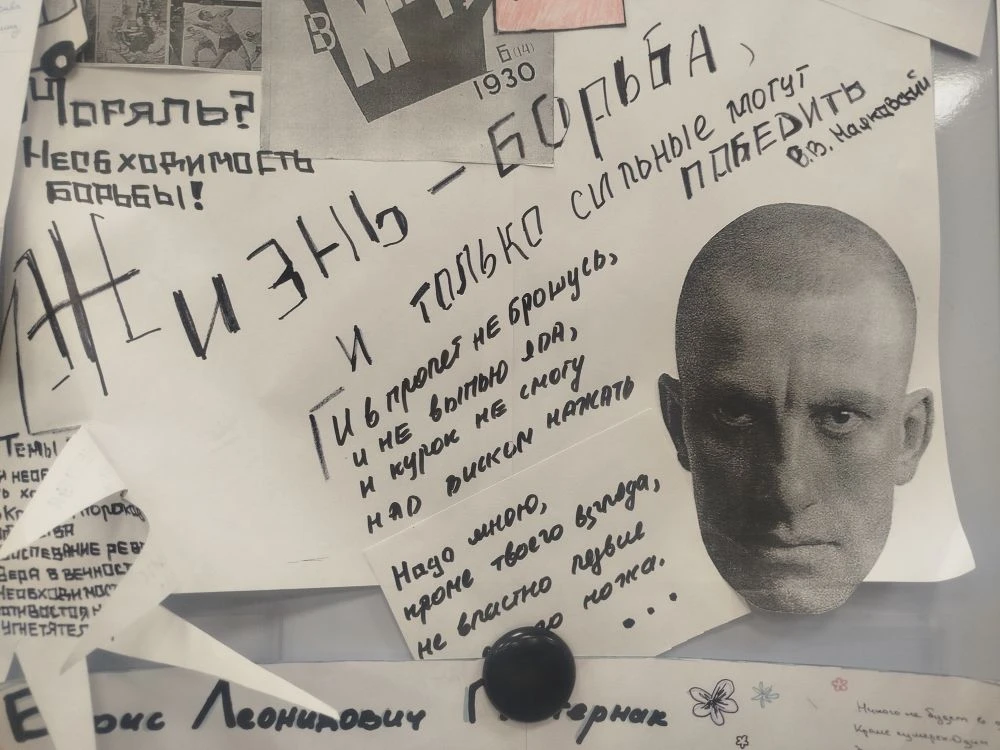 В М
Б(14)
1930
Мораль?
Необходимость
борьбы!
Жизнь – борьба,
и только сильные могут
победить
В.В. Маяковский
И в пролет не брошусь,
и не выпью яда,
и курок не смогу
над виском нажать
Надо мною,
кроме твоего взгляда,
не властно лезвие
ножа.
...
Темы
и необ
Воспевание рев
Вера в вечност
Необходимост
отивостоян
угнетател
Борис Леонидович П тернак
Никого не будет в
Кроме сумерек. Один